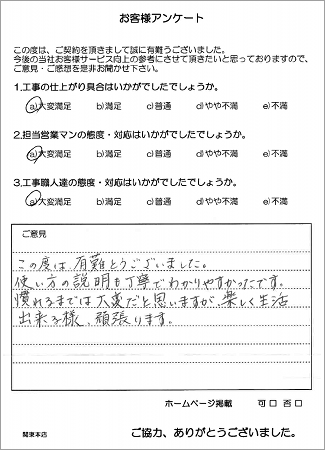 お客様アンケート
この度は、ご契約を頂きまして誠に有難うございました。
今後の当社お客様サービス向上の参考にさせて頂きたいと思っておりますので、
ご意見・ご感想を是非お聞かせ下さい。
1.工事の仕上がり具合はいかがでしたでしょうか。
a)大変満足 b)満足 c)普通 d)やや不満 e)不満
2.担当営業マンの態度・対応はいかがでしたでしょうか。
a)大変満足 b)満足 c)普通 d)やや不満 e)不満
3.工事職人達の態度・対応はいかがでしたでしょうか。
a)大変満足 b)満足 c)普通 d)やや不満 e)不満
ご意見
この度は有難とうございました。
使い方の説明も丁寧でわかりやすかったです。
慣れるまでは大変だと思いますが、楽しく生活
出来る様、頑張ります。
ホームページ掲載 可口 否口
関東本店
ご協力、ありがとうございました。